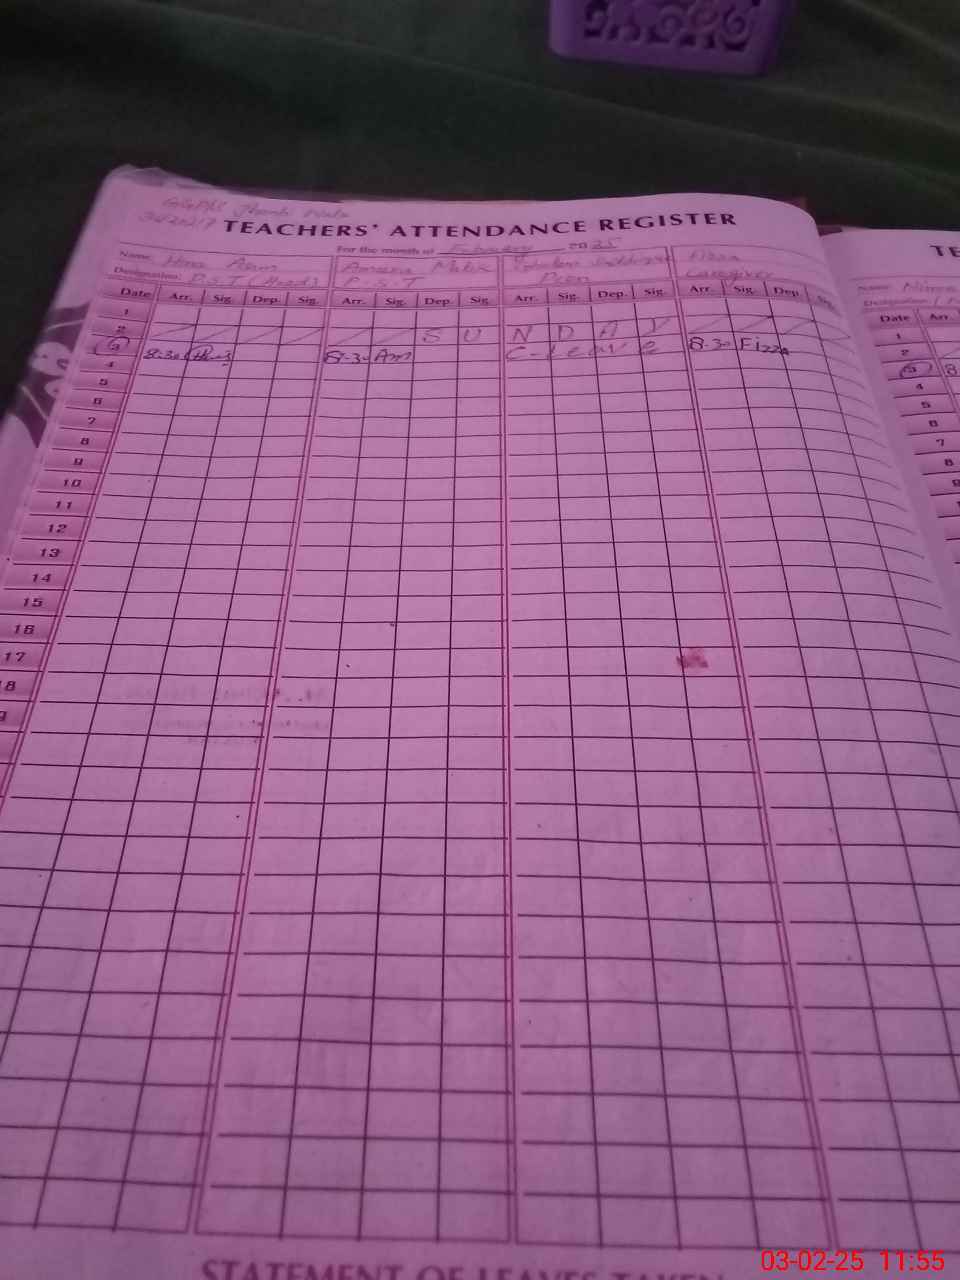 TEACHERS' ATTENDANCE REGISTER
For the month of February 2025
Name: Hina
Designation: P.S.T (Head)
P.S.T
Peon
Fizza
Caregiver
Date Arr. Sig. Dep. Sig. Arr. Sig. Dep. Sig. Arr. Sig. Dep. Sig. Arr. Sig. Dep. Sig.
1
2 S U N D A Y
3 8.30 8.30 Am C-leave 8.30 Fizza
4
5
6
7
8
9
10
11
12
13
14
15
16
17
8
9
STATEMENT OF LEAVES TAKEN
TE
Name:
Designation:
Date Arr.
1
2
3 8
4
5
6
7
8
9
03-02-25 11:55